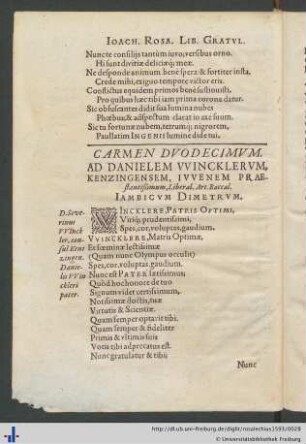 IOACH. ROSÆ. LIB. GRATVL.
Nunc te consilijs tantùm iuuo, versibus orno.
Hi sunt diuitiæ deliciæq; meæ.
Ne desponde animum. benè spera & fortiter insta.
Crede mihi, exiguo tempore victor eris.
Conflictus equidem primos benè sustinuisti,
Pro quibus hæc tibi iam prima corona datur.
Sic obfuscentes didit sua lumina nubes
Phœbus, & adspectum clarat in axe suum.
Sic tu fortunæ nubem, tetrumq; nigrorem,
Paullatim INGENII lumine dide tui.
CARMEN DVODECIMVM.
AD DANIELEM VVINCKLERVM,
KENZINGENSEM, IVVENEM PRÆ-
stantissimum, Liberal. Art. Baccal.
IAMBICVM DIMETRVM.
VVINCKLERE PATRIS OPTIMI,
Viriq; prudentissimi,
Spes, cor, voluptas, gaudium.
VVINCKLERE, Matris Optimæ,
Et fœminæ lectissimæ
(Quam nunc Olympus occulit)
Spes, cor, voluptas, gaudium.
Nunc est PATER lætissimus,
Quòd hoc honore de tuo
Signum videt certissimum,
Notissimæ
Virtutis & Scientiæ.
Quam semper optauit tibi.
Quam semper & fideliter
Primis & vltimis suis
Votis tibi adprecatus est.
Nunc gratulatur & tibi:
Nunc
D. Seue-
rinus
VVinck-
ler, con-
sul Kent
zingen.
Danie-
lis VVin
ckleri
pater.
http://dl.ub.uni-freiburg.de/diglit/rosalechius1593/0028
© Universitätsbibliothek Freiburg